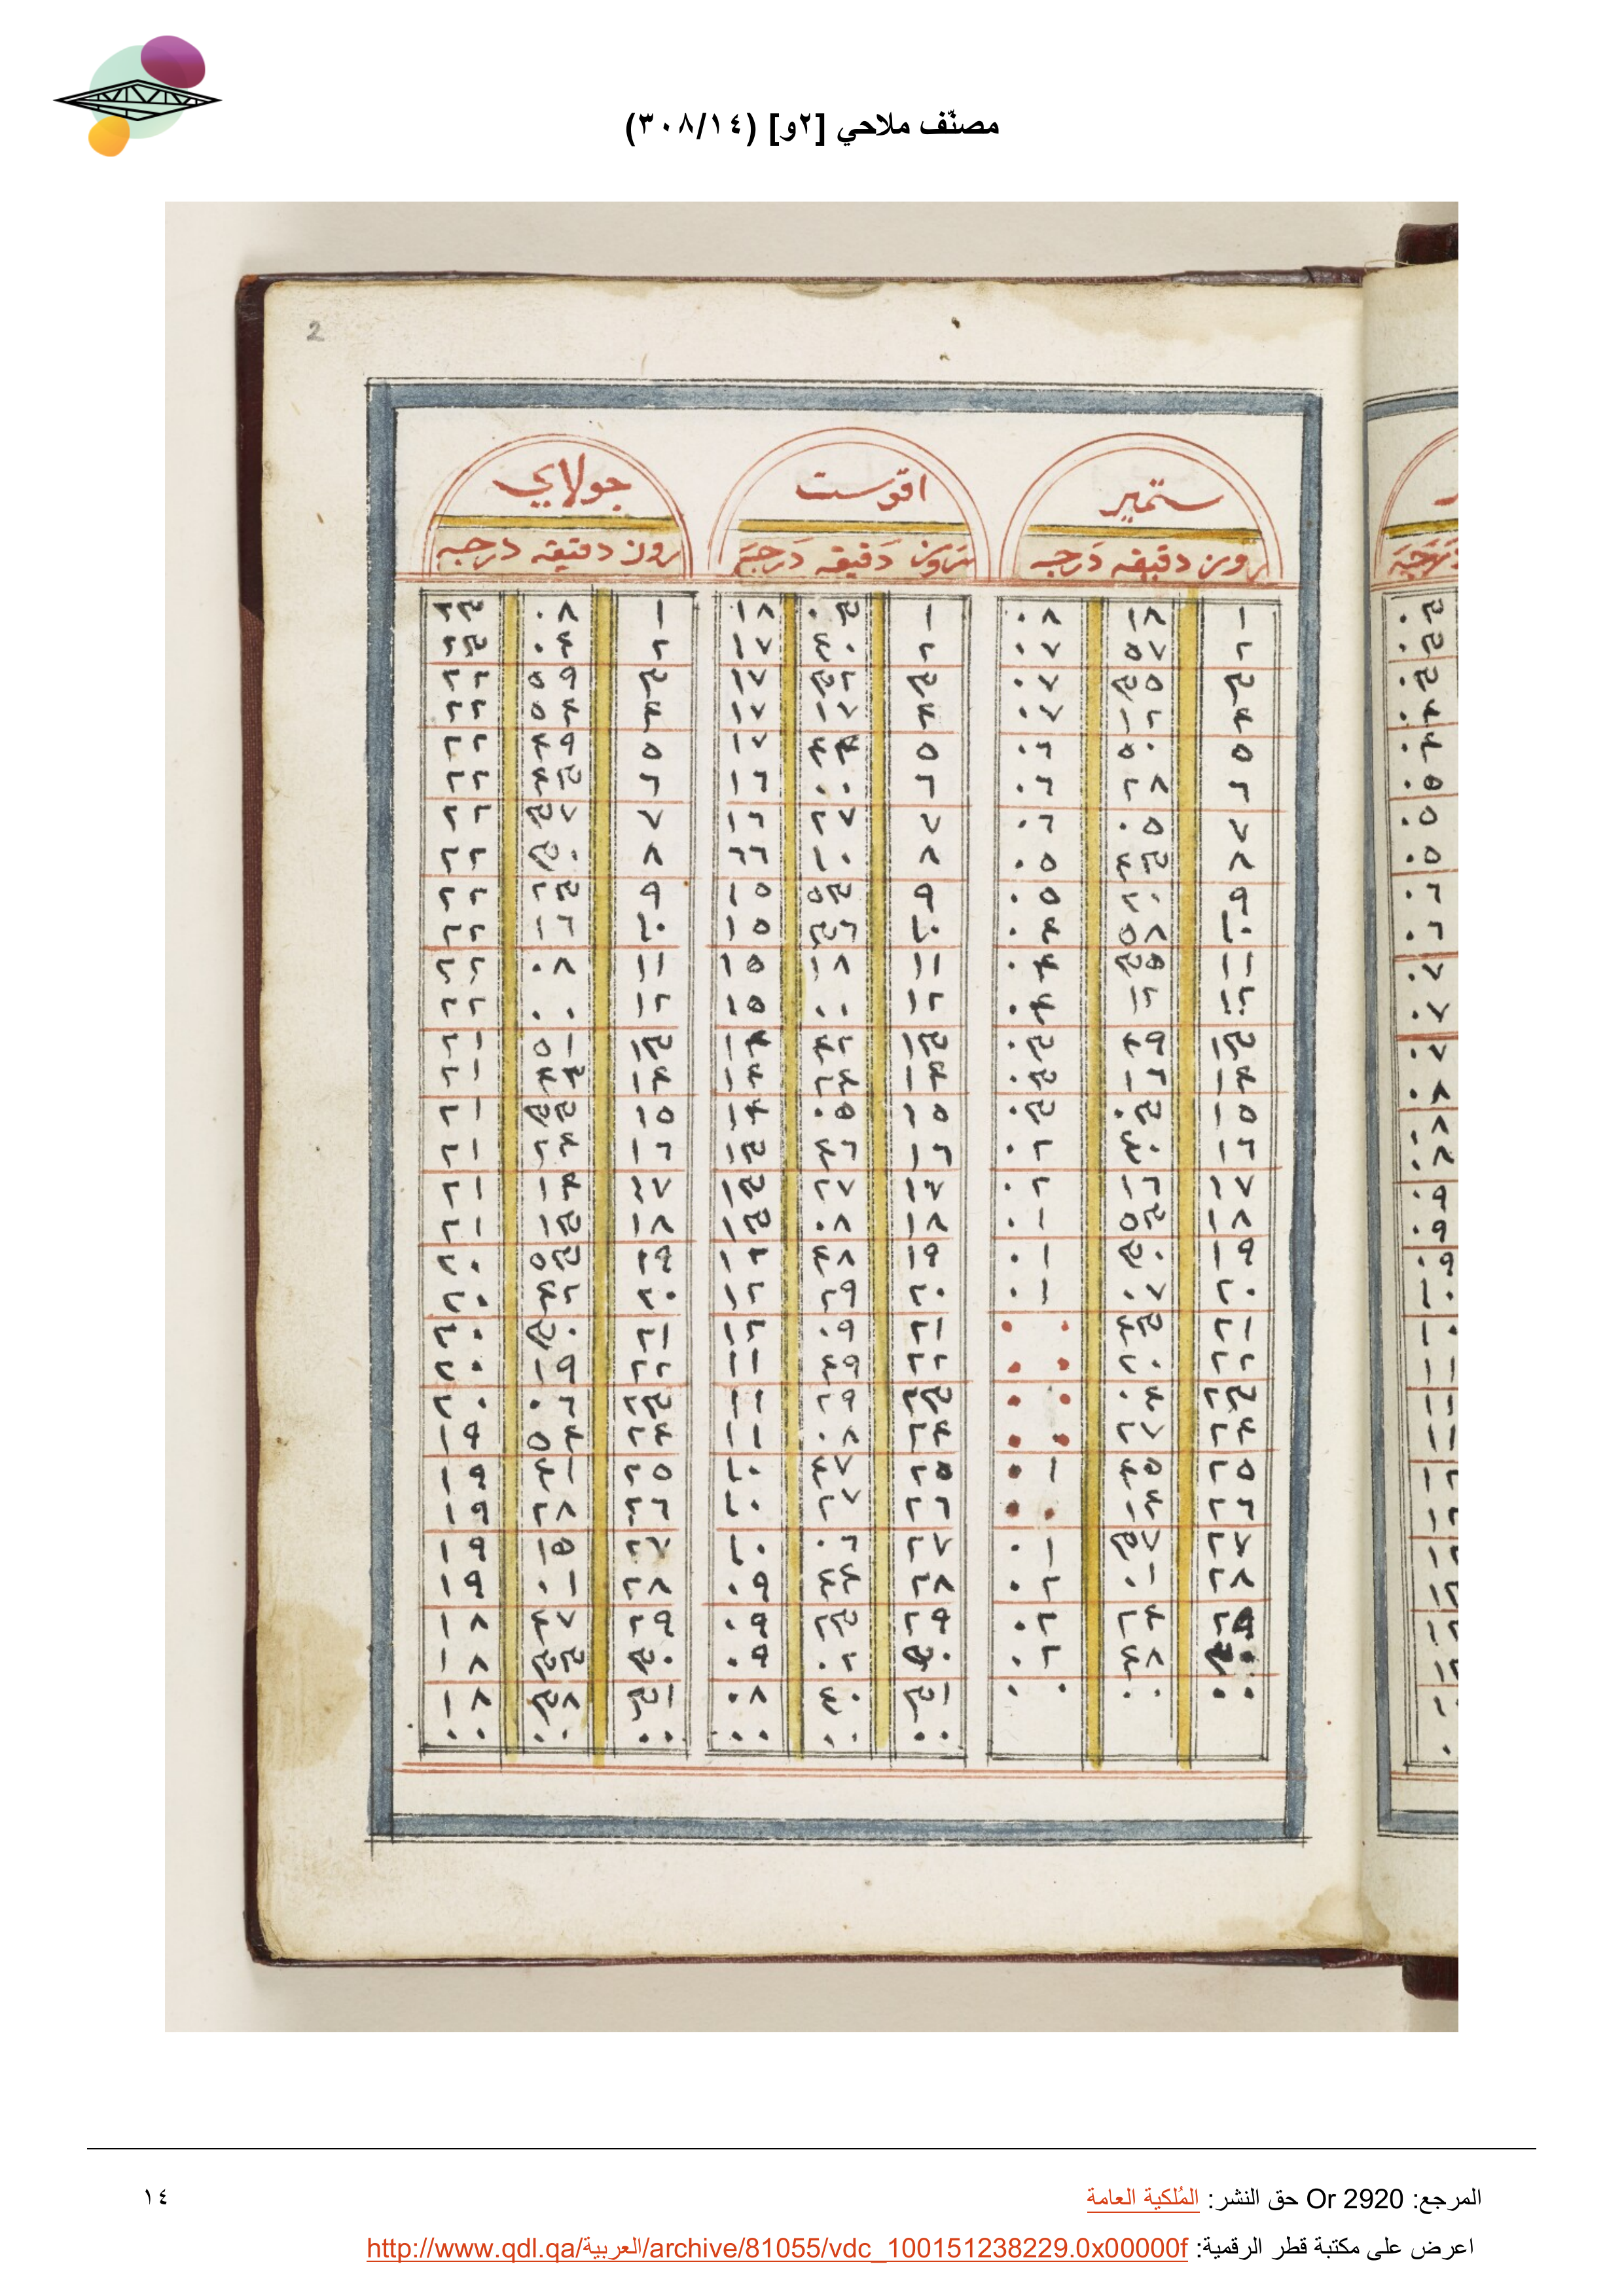 مصنّف ملاحي [٢و] (٣٠٨/١٤)
2
ستمبر اقوست جولاي
روز دقيقه درجه روز دقيقه درجه روز دقيقه درجه
١ ١٨ ٠٨ ١ ٠٣ ١٨ ١ ٠٨ ٢٣
٢ ٥٧ ٠٧ ٢ ٤٠ ١٧ ٢ ٠٤ ٢٣
٣ ٣٥ ٠٧ ٣ ٣٢ ١٧ ٣ ٥٩ ٢٢
٤ ١٢ ٠٧ ٤ ١٧ ١٧ ٤ ٥٤ ٢٢
٥ ٥٠ ٠٦ ٥ ٤٤ ١٧ ٥ ٤٩ ٢٢
٦ ٢٨ ٠٦ ٦ ٠٠ ١٦ ٦ ٤٣ ٢٢
٧ ٠٥ ٠٦ ٧ ٢٧ ١٦ ٧ ٣٧ ٢٢
٨ ٤٣ ٠٥ ٨ ١٠ ٦٦ ٨ ٣٠ ٢٢
٩ ٢٠ ٠٥ ٩ ٥٣ ١٥ ٩ ٢٣ ٢٢
١٠ ٥٨ ٠٤ ١٠ ٣٦ ١٥ ١٠ ١٦ ٢٢
١١ ٣٥ ٠٤ ١١ ١٨ ١٥ ١١ ٠٨ ٢٢
١٢ ١٢ ٠٤ ١٢ ٠٠ ١٥ ١٢ ٠٠ ٢٢
١٣ ٤٩ ٠٣ ١٣ ٤٢ ١٤ ١٣ ٥١ ٢١
١٤ ١٦ ٠٣ ١٤ ٢٤ ١٤ ١٤ ٤٤ ٢١
١٥ ٠٣ ٠٣ ١٥ ٠٥ ١٤ ١٥ ٣٣ ٢١
١٦ ٤٠ ٠٢ ١٦ ٤٦ ١٣ ١٦ ٢٤ ٢١
١٧ ١٦ ٠٢ ١٧ ٢٧ ١٣ ١٧ ١٤ ٢١
١٨ ٥٣ ٠١ ١٨ ٠٨ ١٣ ١٨ ١٣ ٢١
١٩ ٣٠ ٠١ ١٩ ٤٨ ١٢ ١٩ ٥٣ ٢٠
٢٠ ٠٧ ٠١ ٢٠ ٢٩ ١٢ ٢٠ ٤٢ ٢٠
٢١ ٤٣ ٠٠ ٢١ ٠٩ ١٢ ٢١ ٣٠ ٢٠
٢٢ ٢٠ ٠٠ ٢٢ ٤٩ ١١ ٢٢ ١٩ ٢٠
٢٣ ٠٤ ٠٠ ٢٣ ٢٩ ١١ ٢٣ ٠٦ ٢٠
٢٤ ٢٧ ٠٠ ٢٤ ٠٨ ١١ ٢٤ ٥٤ ١٩
٢٥ ٤٥ ٠١ ٢٥ ٤٧ ١٠ ٢٥ ٤١ ١٩
٢٦ ١٤ ٠٠ ٢٦ ٢٧ ١٠ ٢٦ ٢٨ ١٩
٢٧ ٣٧ ٠١ ٢٧ ٠٦ ١٠ ٢٧ ١٥ ١٩
٢٨ ٠١ ٠٢ ٢٨ ٤٤ ٠٩ ٢٨ ٠١ ١٩
٢٩ ٢٤ ٠٢ ٢٩ ٢٣ ٠٩ ٢٩ ٤٧ ١٨
٣٠ ٤٨ ٠٢ ٣٠ ٠٢ ٠٩ ٣٠ ٣٣ ١٨
٠٠ ٠٠ ٠٠ ٣١ ٤٠ ٠٨ ٣١ ٣٨ ١٨
٠٠ ٠٠ ٠٠ ٠٠ ٠٠ ٠٠
المرجع: Or 2920 حق النشر: المُلكية العامة
١٤
اعرض على مكتبة قطر الرقمية: http://www.qdl.qa/العربية/archive/81055/vdc_100151238229.0x00000f